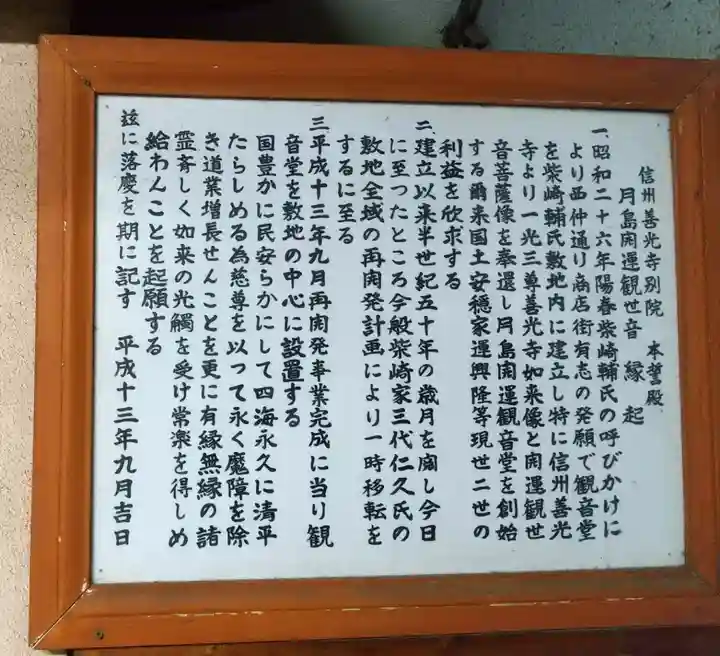 信州善光寺別院　本誓殿
月島開運観世音　縁起
一、昭和二十六年陽春柴崎輔氏の呼びかけに
より西仲通り商店街有志の発願で観音堂
を柴崎輔氏敷地内に建立し特に信州善光
寺より一光三尊善光寺如来像と開運観世
音菩薩像を奉還し月島開運観音堂を創始
する爾来国土安穏家運興隆等現世二世の
利益を欣求する
二、建立以来半世紀五十年の歳月を閲し今日
に至つたところ今般柴崎家三代仁久氏の
敷地全域の再開発計画により一時移転を
するに至る
三平成十三年九月再開発事業完成に当り観
音堂を敷地の中心に設置する
国豊かに民安らかにして四海永久に清平
たらしめる為慈尊を以つて永く魔障を除
き道業増長せんことを更に有縁無縁の諸
霊斉しく如来の光觸を受け常楽を得しめ
給わんことを起願する
玆に落慶を期に記す　平成十三年九月吉日